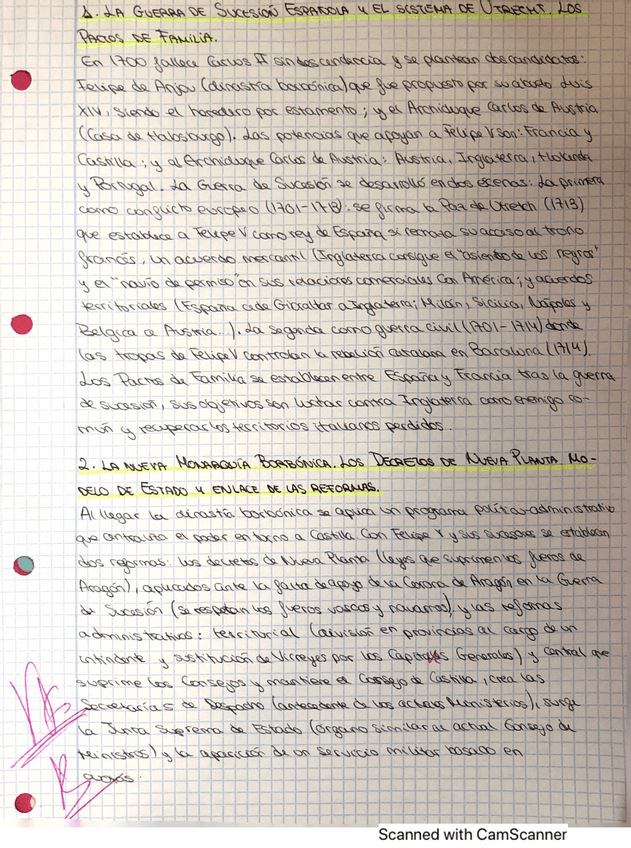 1. LA GUERRA DE SUCESIÓN ESPAÑOLA Y EL SISTEMA DE UTRECHT. LOS
PACTOS DE FAMILIA.
En 1700 fallece Carlos II sin descendencia y se plantean dos candidatos:
Felipe de Anjou (dinastía borbónica) que fue propuesto por su abuelo Luis
XIV, siendo el heredero por estamento; y el Archiduque Carlos de Austria
(Casa de Habsburgo). Las potencias que apoyan a Felipe V son: Francia y
Castilla; y al Archiduque Carlos de Austria: Austria, Inglaterra, Holanda
y Portugal. La Guerra de Sucesión se desarrolló en dos escenas: La primera
como conflicto europeo (1701-1713): se firma la Paz de Utrech (1713)
que establece a Felipe V como rey de España si renuncia su acceso al trono
francés, un acuerdo mercantil (Inglaterra consigue el "asiento de los negros"
y el "navío de permiso" en sus relaciones comerciales con América; y acuerdos
territoriales (España cede Gibraltar a Inglaterra; Milán, Sicilia, Nápoles y
Bélgica a Austria...). La segunda como guerra civil (1701-1714) donde
las tropas de Felipe V controlan la rebelión catalana en Barcelona (1714).
Los Pactos de Familia se establecen entre España y Francia tras la guerra
de sucesión, sus objetivos son luchar contra Inglaterra como enemigo co-
mún y recuperar los territorios italianos perdidos.
2. LA NUEVA MONARQUÍA BORBÓNICA. LOS DECRETOS DE NUEVA PLANTA MO-
DELO DE ESTADO Y ENLACE DE LAS REFORMAS.
Al llegar la dinastía borbónica se aplica un programa político-administrativo
que centraliza el poder en torno a Castilla. Con Felipe V y sus sucesores se establecen
dos reformas: los decretos de Nueva Planta (leyes que suprimen los fueros de
Aragón), aplicados ante la falta de apoyo de la Corona de Aragón en la Guerra
de Sucesión (se respetan los fueros vascos y navarros) y las reformas
administrativas: territorial (división en provincias al cargo de un
intendente y sustitución de Virreyes por los Capitanes Generales) y central que
suprime los Consejos y mantiene el Consejo de Castilla, crea las
Secretarías de Despacho (antecedente de los actuales Ministerios), surge
la Junta Suprema de Estado (órgano similar al actual Consejo de
Ministros) y la aparición de un servicio militar basado en
quotas.
Scanned with CamScanner